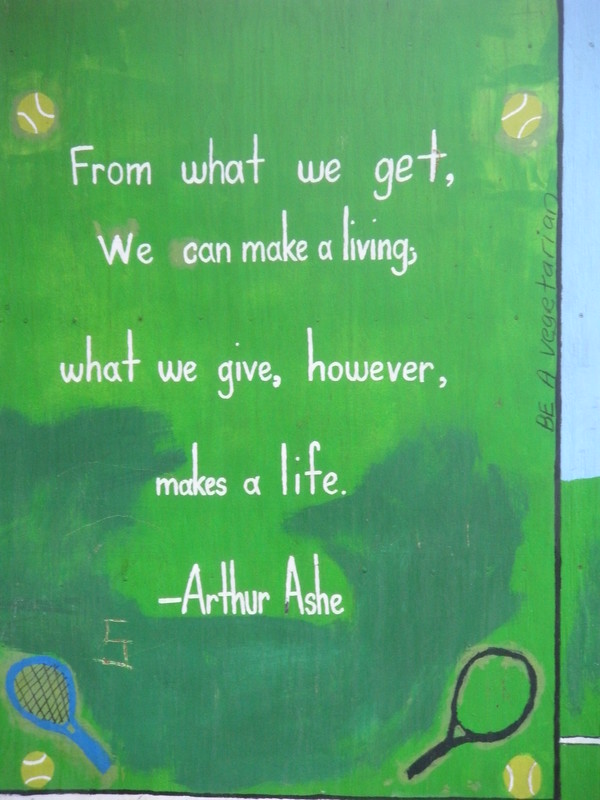 From what we get,
We can make a living;
what we give, however,
makes a life.
-Arthur Ashe
BE A vegetarian